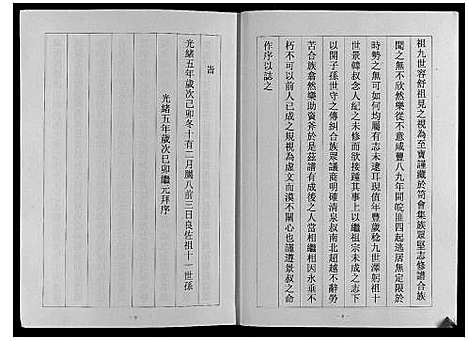 祖九世容舒祖見之視為至寶謹藏於笥會集族眾堅志修譜合族
聞之無不欣然樂從不意咸豐八九年間皖匪四起逃居無定限於
時勢之無可如何均屬有志未逮耳現值年豊歲稔九世澤躬祖十
世景韓叔念人紀之未修而欲接踵其事上以繼祖宗未成之志下
以開子孫世守之傳糾合族眾議商明確清泉叔南北超越不辭勞
苦合族翕然樂助資斧於是茲譜有成後之人當相繼因永垂不
朽不可以前人已成之規視為虛文而漠不關心也謹遵景叔之命
作序以誌之
旹
光緒五年歲次己卯冬十有二月臘八前三日良佐祖十一世孫
光緒五年歲次己卯繼元拜序